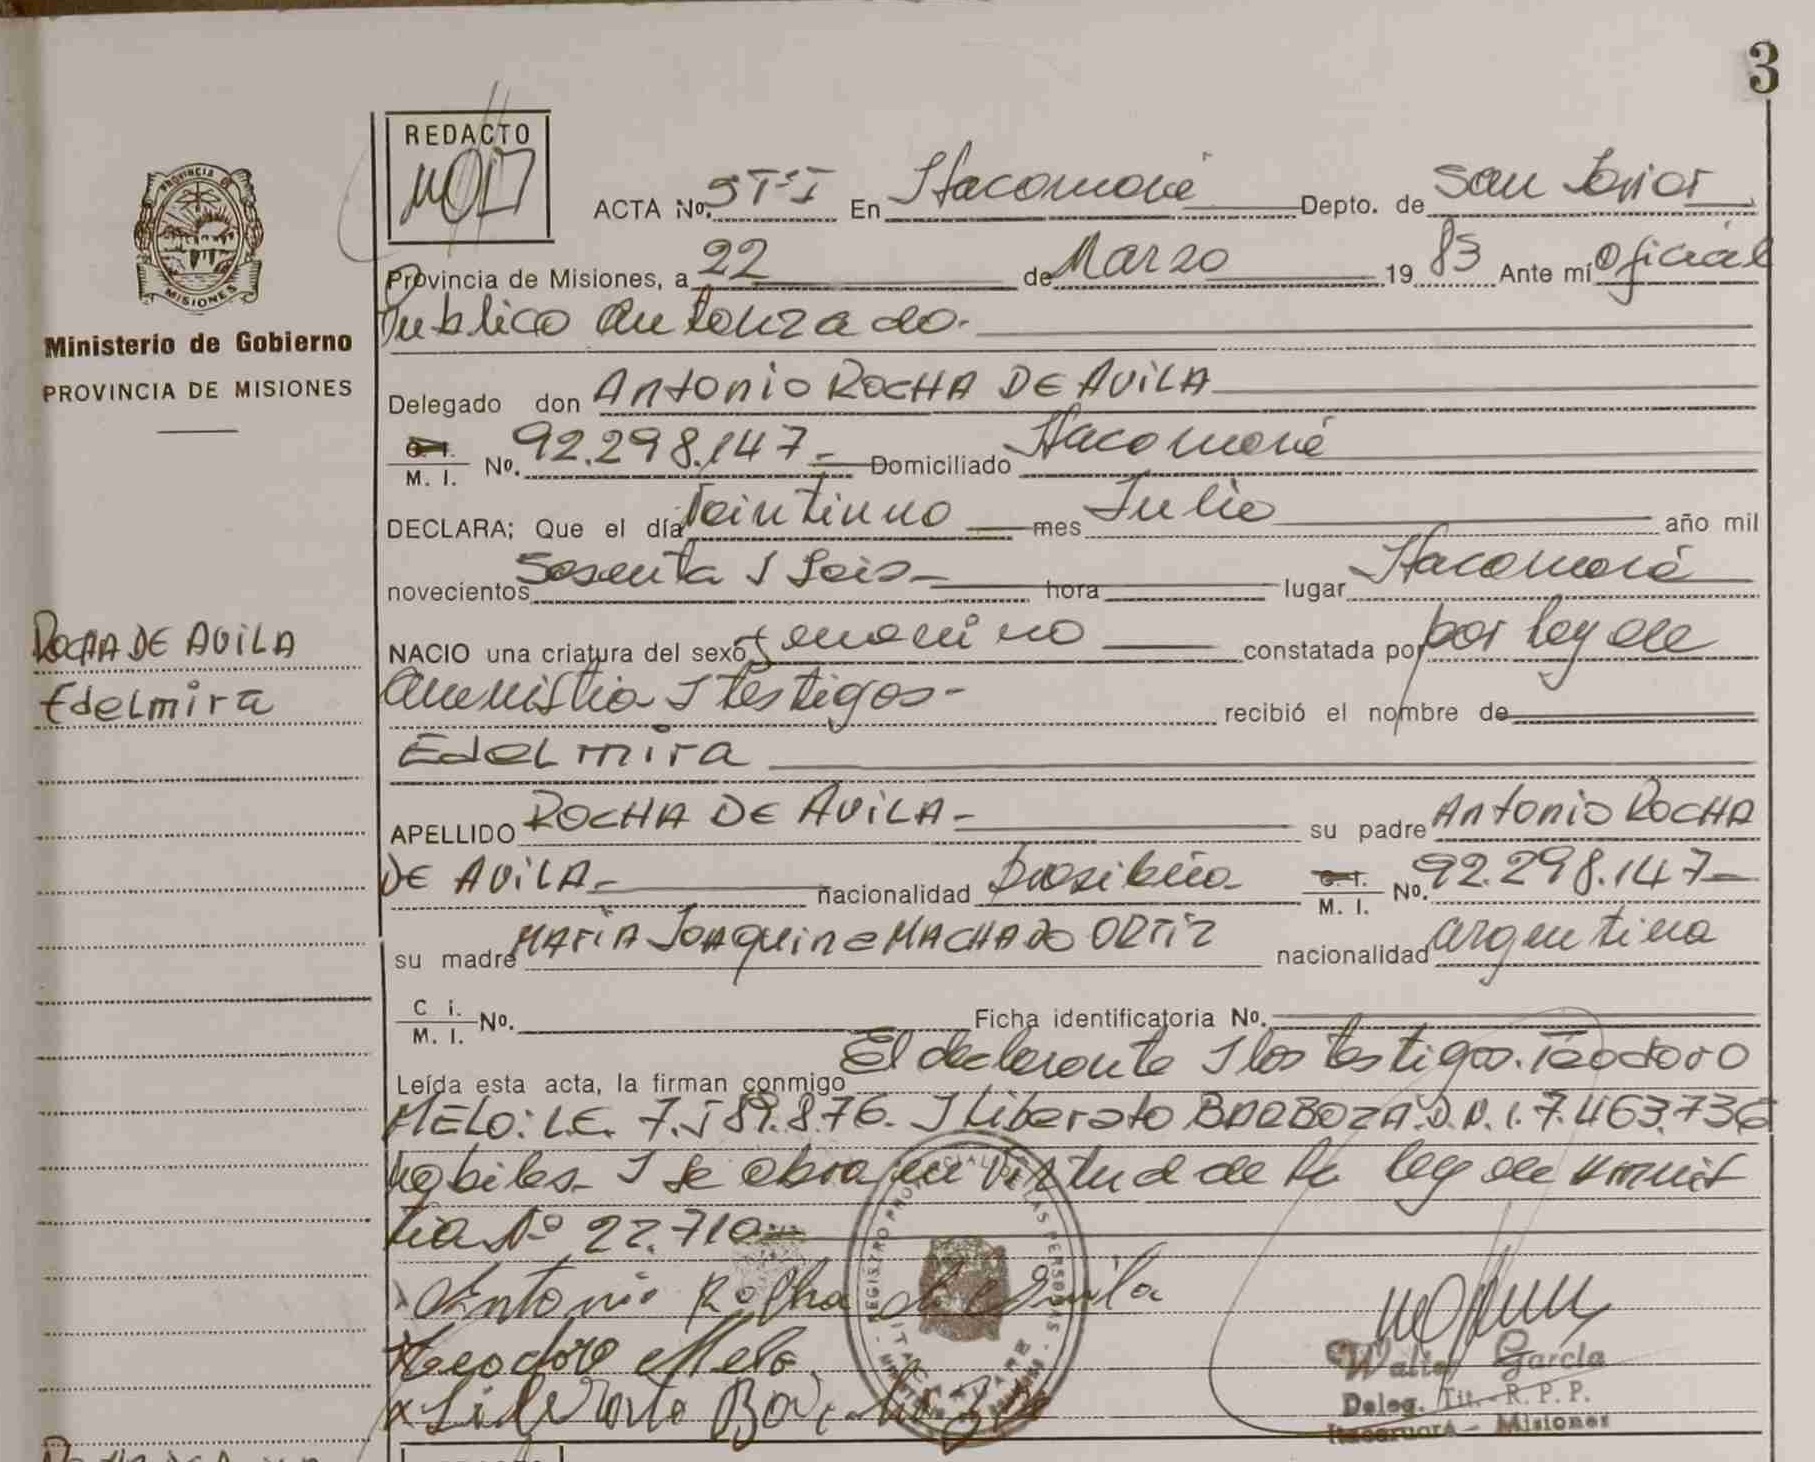 3
REDACTO
PROVINCIA DE
MISIONES
Ministerio de Gobierno
PROVINCIA DE MISIONES
ACTA No. 5 T-I En Itacaruaré Depto. de San Javier
Provincia de Misiones, a 22 de Marzo 19 83 Ante mí Oficial
Publico Autorizado.
Delegado don Antonio ROCHA DE AVILA
C. I. M. I. No. 92.298.147- Domiciliado Itacaruaré
DECLARA; Que el día Veintiuno mes Julio año mil
novecientos Sesenta y Seis hora lugar Itacaruaré
ROCHA DE AVILA
Edelmira
NACIO una criatura del sexo femenino constatada por por ley de
Amnistia y testigos- recibió el nombre de
Edelmira
APELLIDO ROCHA DE AVILA- su padre Antonio ROCHA
DE AVILA- nacionalidad Brasileña C. I. M. I. No. 92.298.147-
su madre Maria Joaquina MACHADO ORTIZ nacionalidad argentina
C i. M. I. No. Ficha identificatoria No.
Leída esta acta, la firman conmigo El declarante y los testigos. Teodoro
MELO: L.E. 7.589.876. y Liberato BARBOZA D.N.I. 7.463.736
habiles- y se obra en virtud de la ley de Amnis
tia Nº 22.710
Antonio Rocha de Avila
Teodoro Melo
x Liberato Barboza
REGISTRO PROVINCIAL DE LAS PERSONAS
Walter García
Deleg. Tit. - R. P. P.
Itacaruaré - Misiones